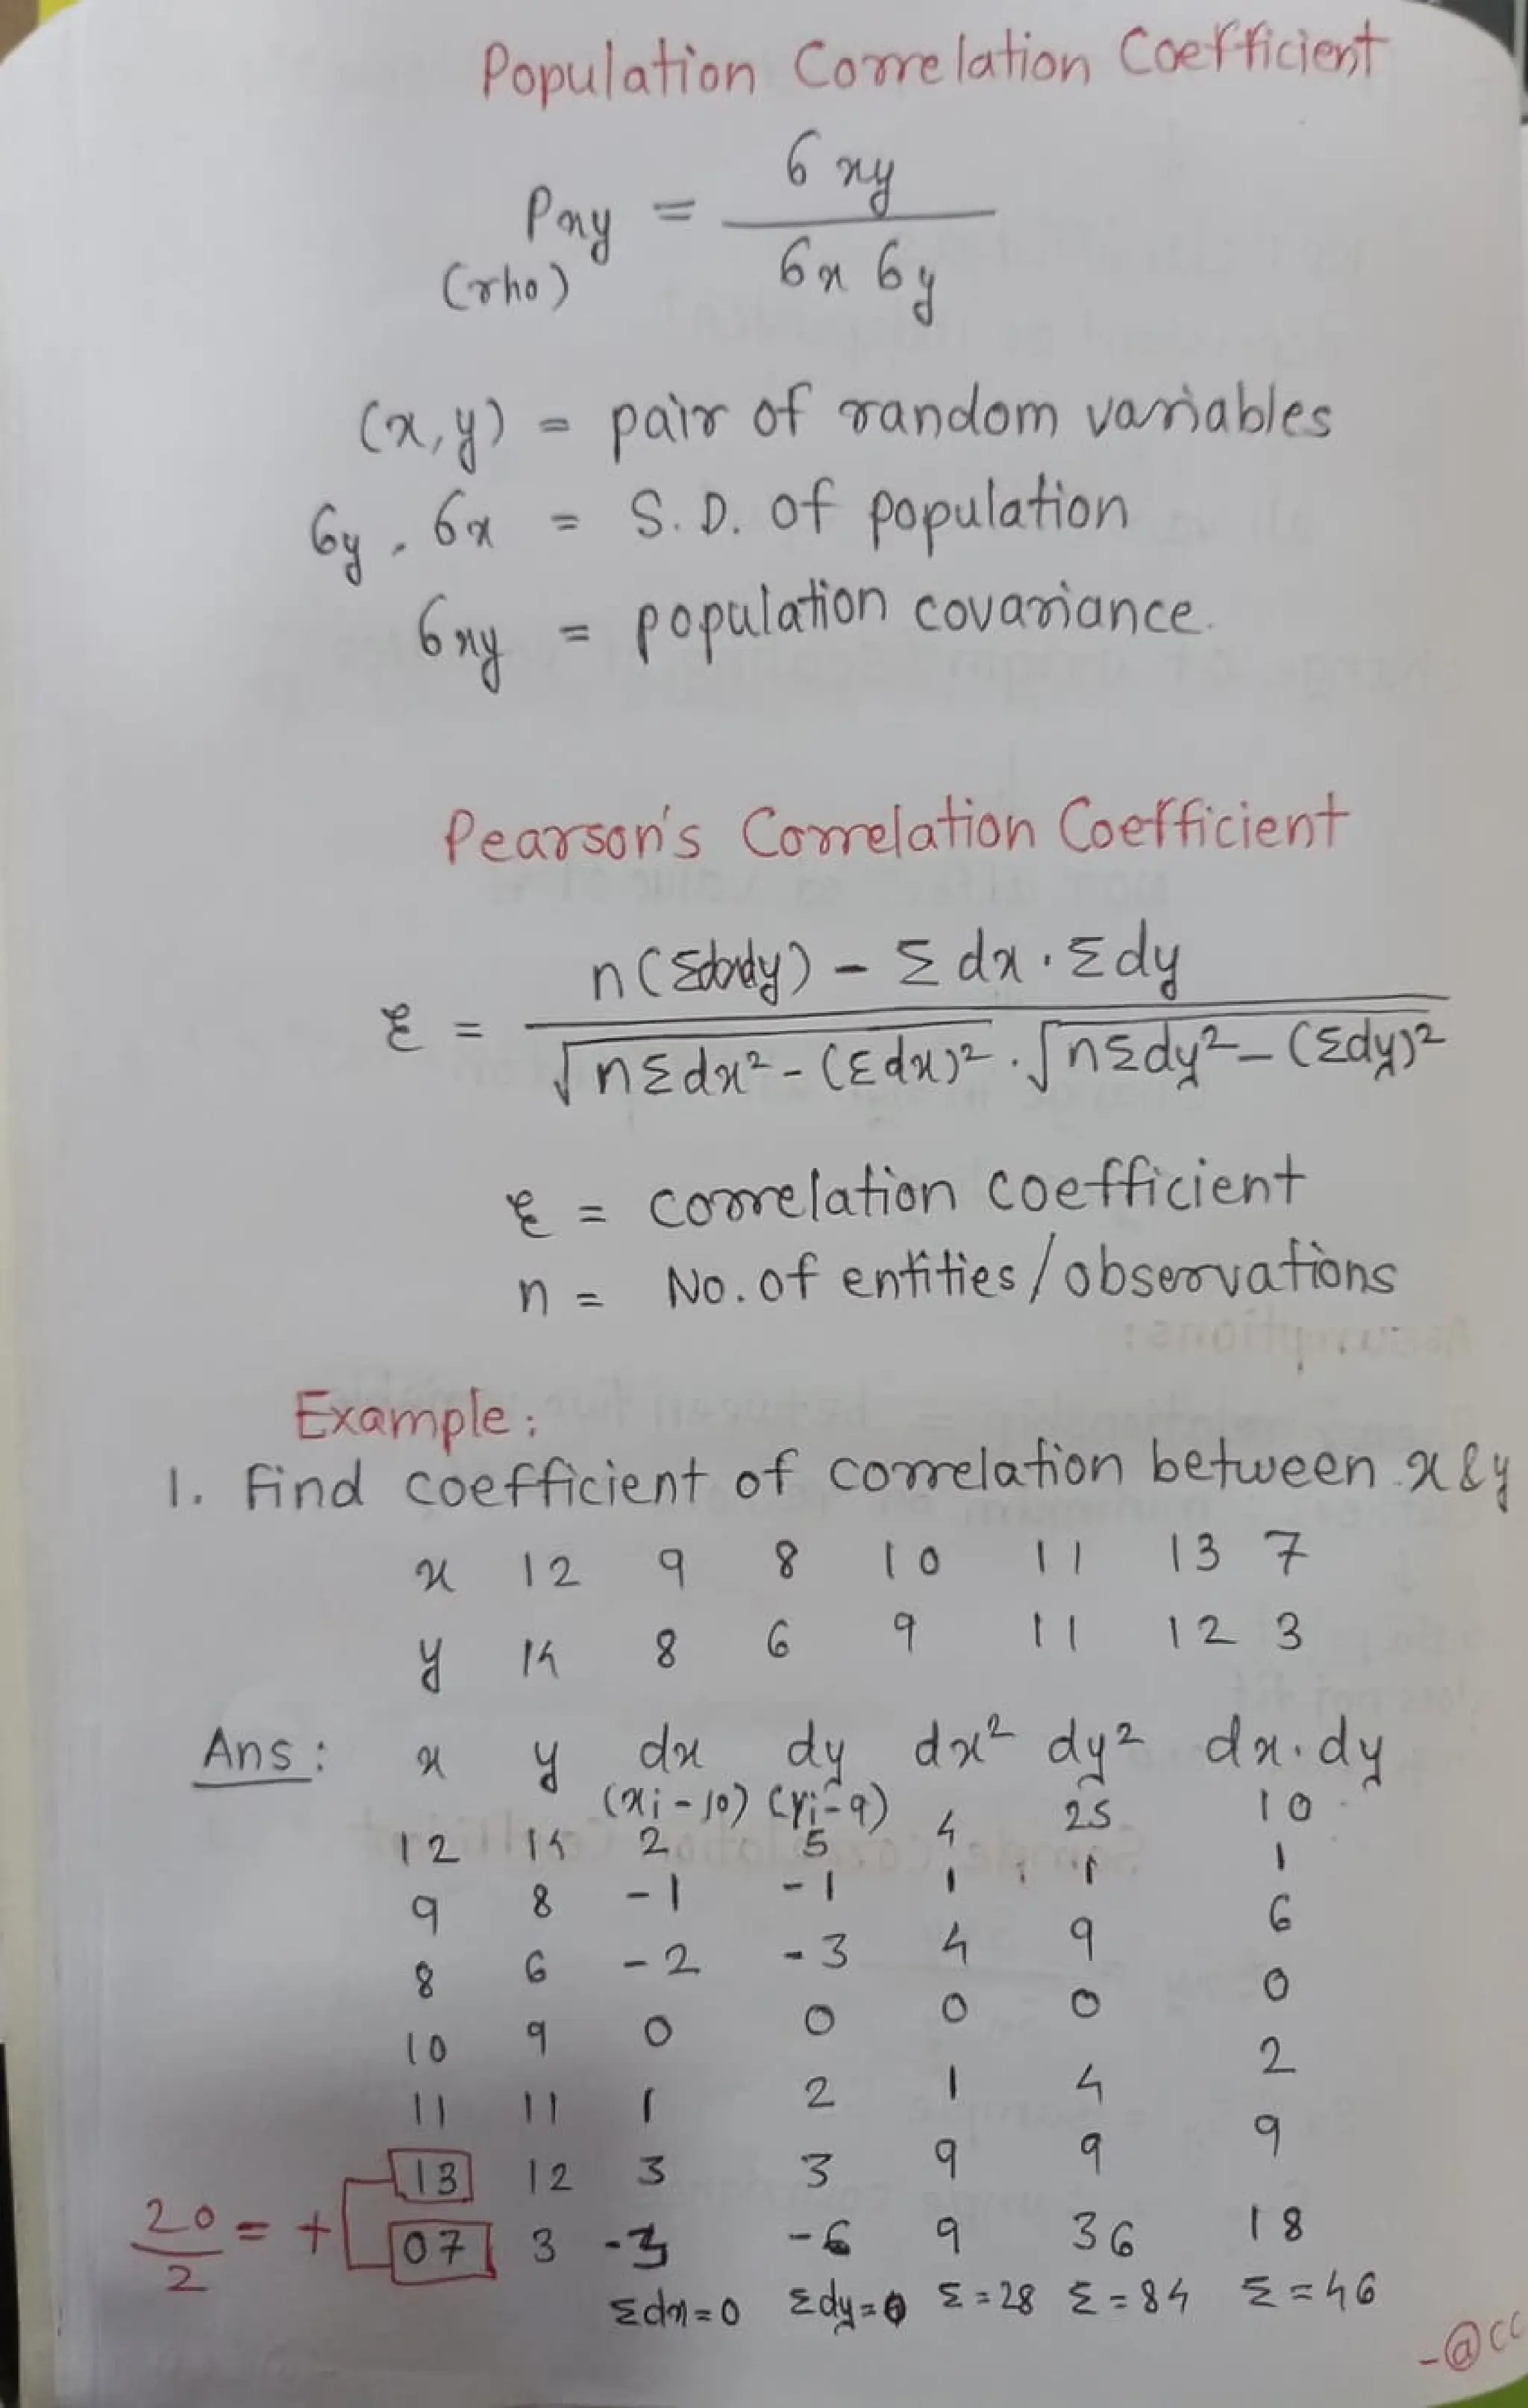 Population Correlation Coefficient
ρxy = σxy / σx σy
(rho)
(x, y) = pair of random variables
σy, σx = S.D. of population
σxy = population covariance.
Pearson's Correlation Coefficient
r = n(Σdxdy) - Σdx · Σdy / √nΣdx² - (Σdx)² · √nΣdy² - (Σdy)²
r = correlation coefficient
n = No. of entities / observations
Example:
1. Find coefficient of correlation between x & y
x 12 9 8 10 11 13 7
y 14 8 6 9 11 12 3
Ans: x y dx dy dx² dy² dx.dy
(xi - 10) (Yi - 9)
12 14 2 5 4 25 10
9 8 -1 -1 1 1 1
8 6 -2 -3 4 9 6
10 9 0 0 0 0 0
11 11 1 2 1 4 2
13 12 3 3 9 9 9
20/2 = +
07 3 -3 -6 9 36 18
Σdx = 0 Σdy = 0 Σ = 28 Σ = 84 Σ = 46
-@CC